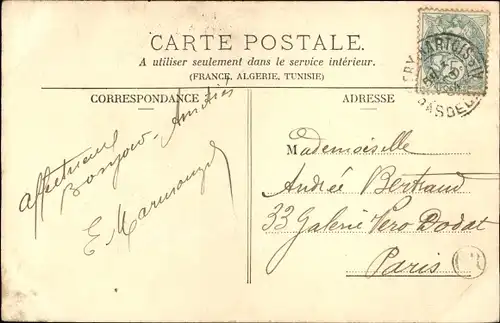 CARTE POSTALE.
A utiliser seulement dans le service intérieur.
(FRANCE, ALGERIE, TUNISIE)
CORRESPONDANCE
Affectueux
Bonjour. Amitiés
E
ADRESSE
Mademoiselle
Andrée Bertaud
33 Galerie Vero Dodat
Paris